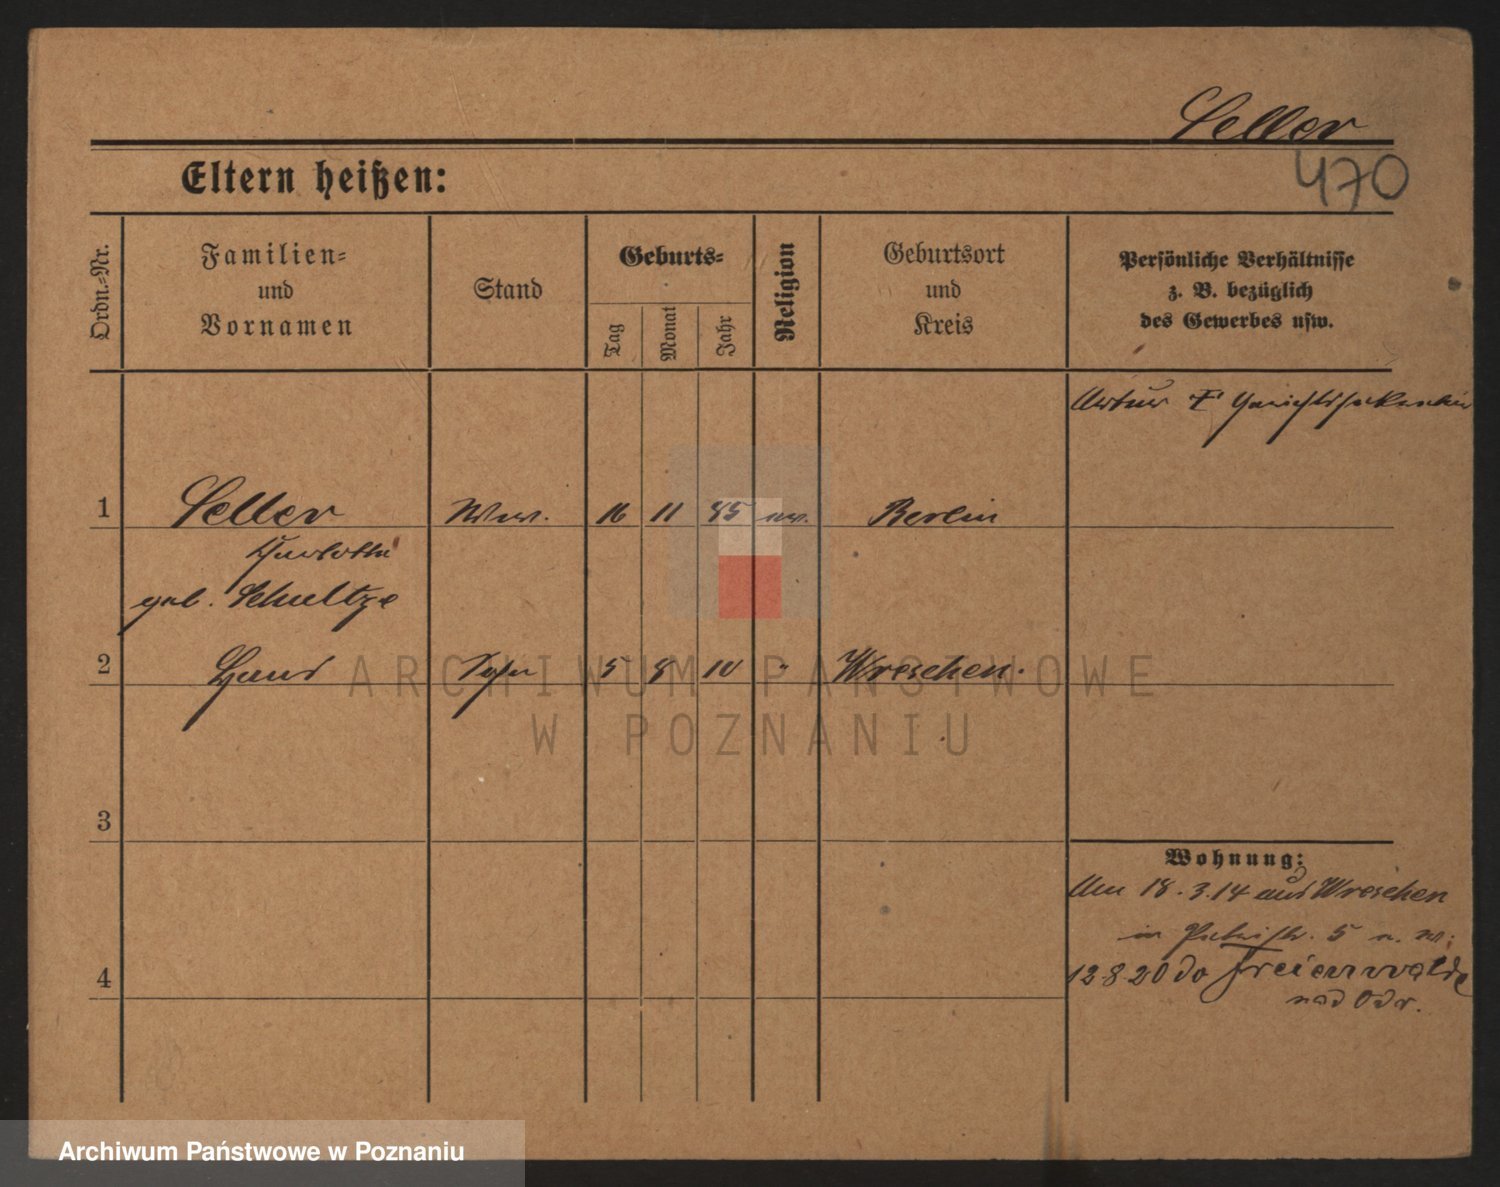 Seller
470
Eltern heißen:
Ordn.-Nr.
Familien-
und
Vornamen
Stand
Geburts-
Tag
Monat
Jahr
Religion
Geburtsort
und
Kreis
Persönliche Verhältnisse
z. B. bezüglich
des Gewerbes usw.
Artur Gerichtssekretär
1 Seller Wwe. 16 11 85 ev. Berlin
Charlotte
geb. Schultze
2 Hans Sohn 5 8 10 " Wreschen.
3
Wohnung:
Am 18.3.14 aus Wreschen
in 5
4
12 8 20 do Freienwalde
nad Odr.
ARCHIWUM PAŃSTWOWE
W POZNANIU
Archiwum Państwowe w Poznaniu